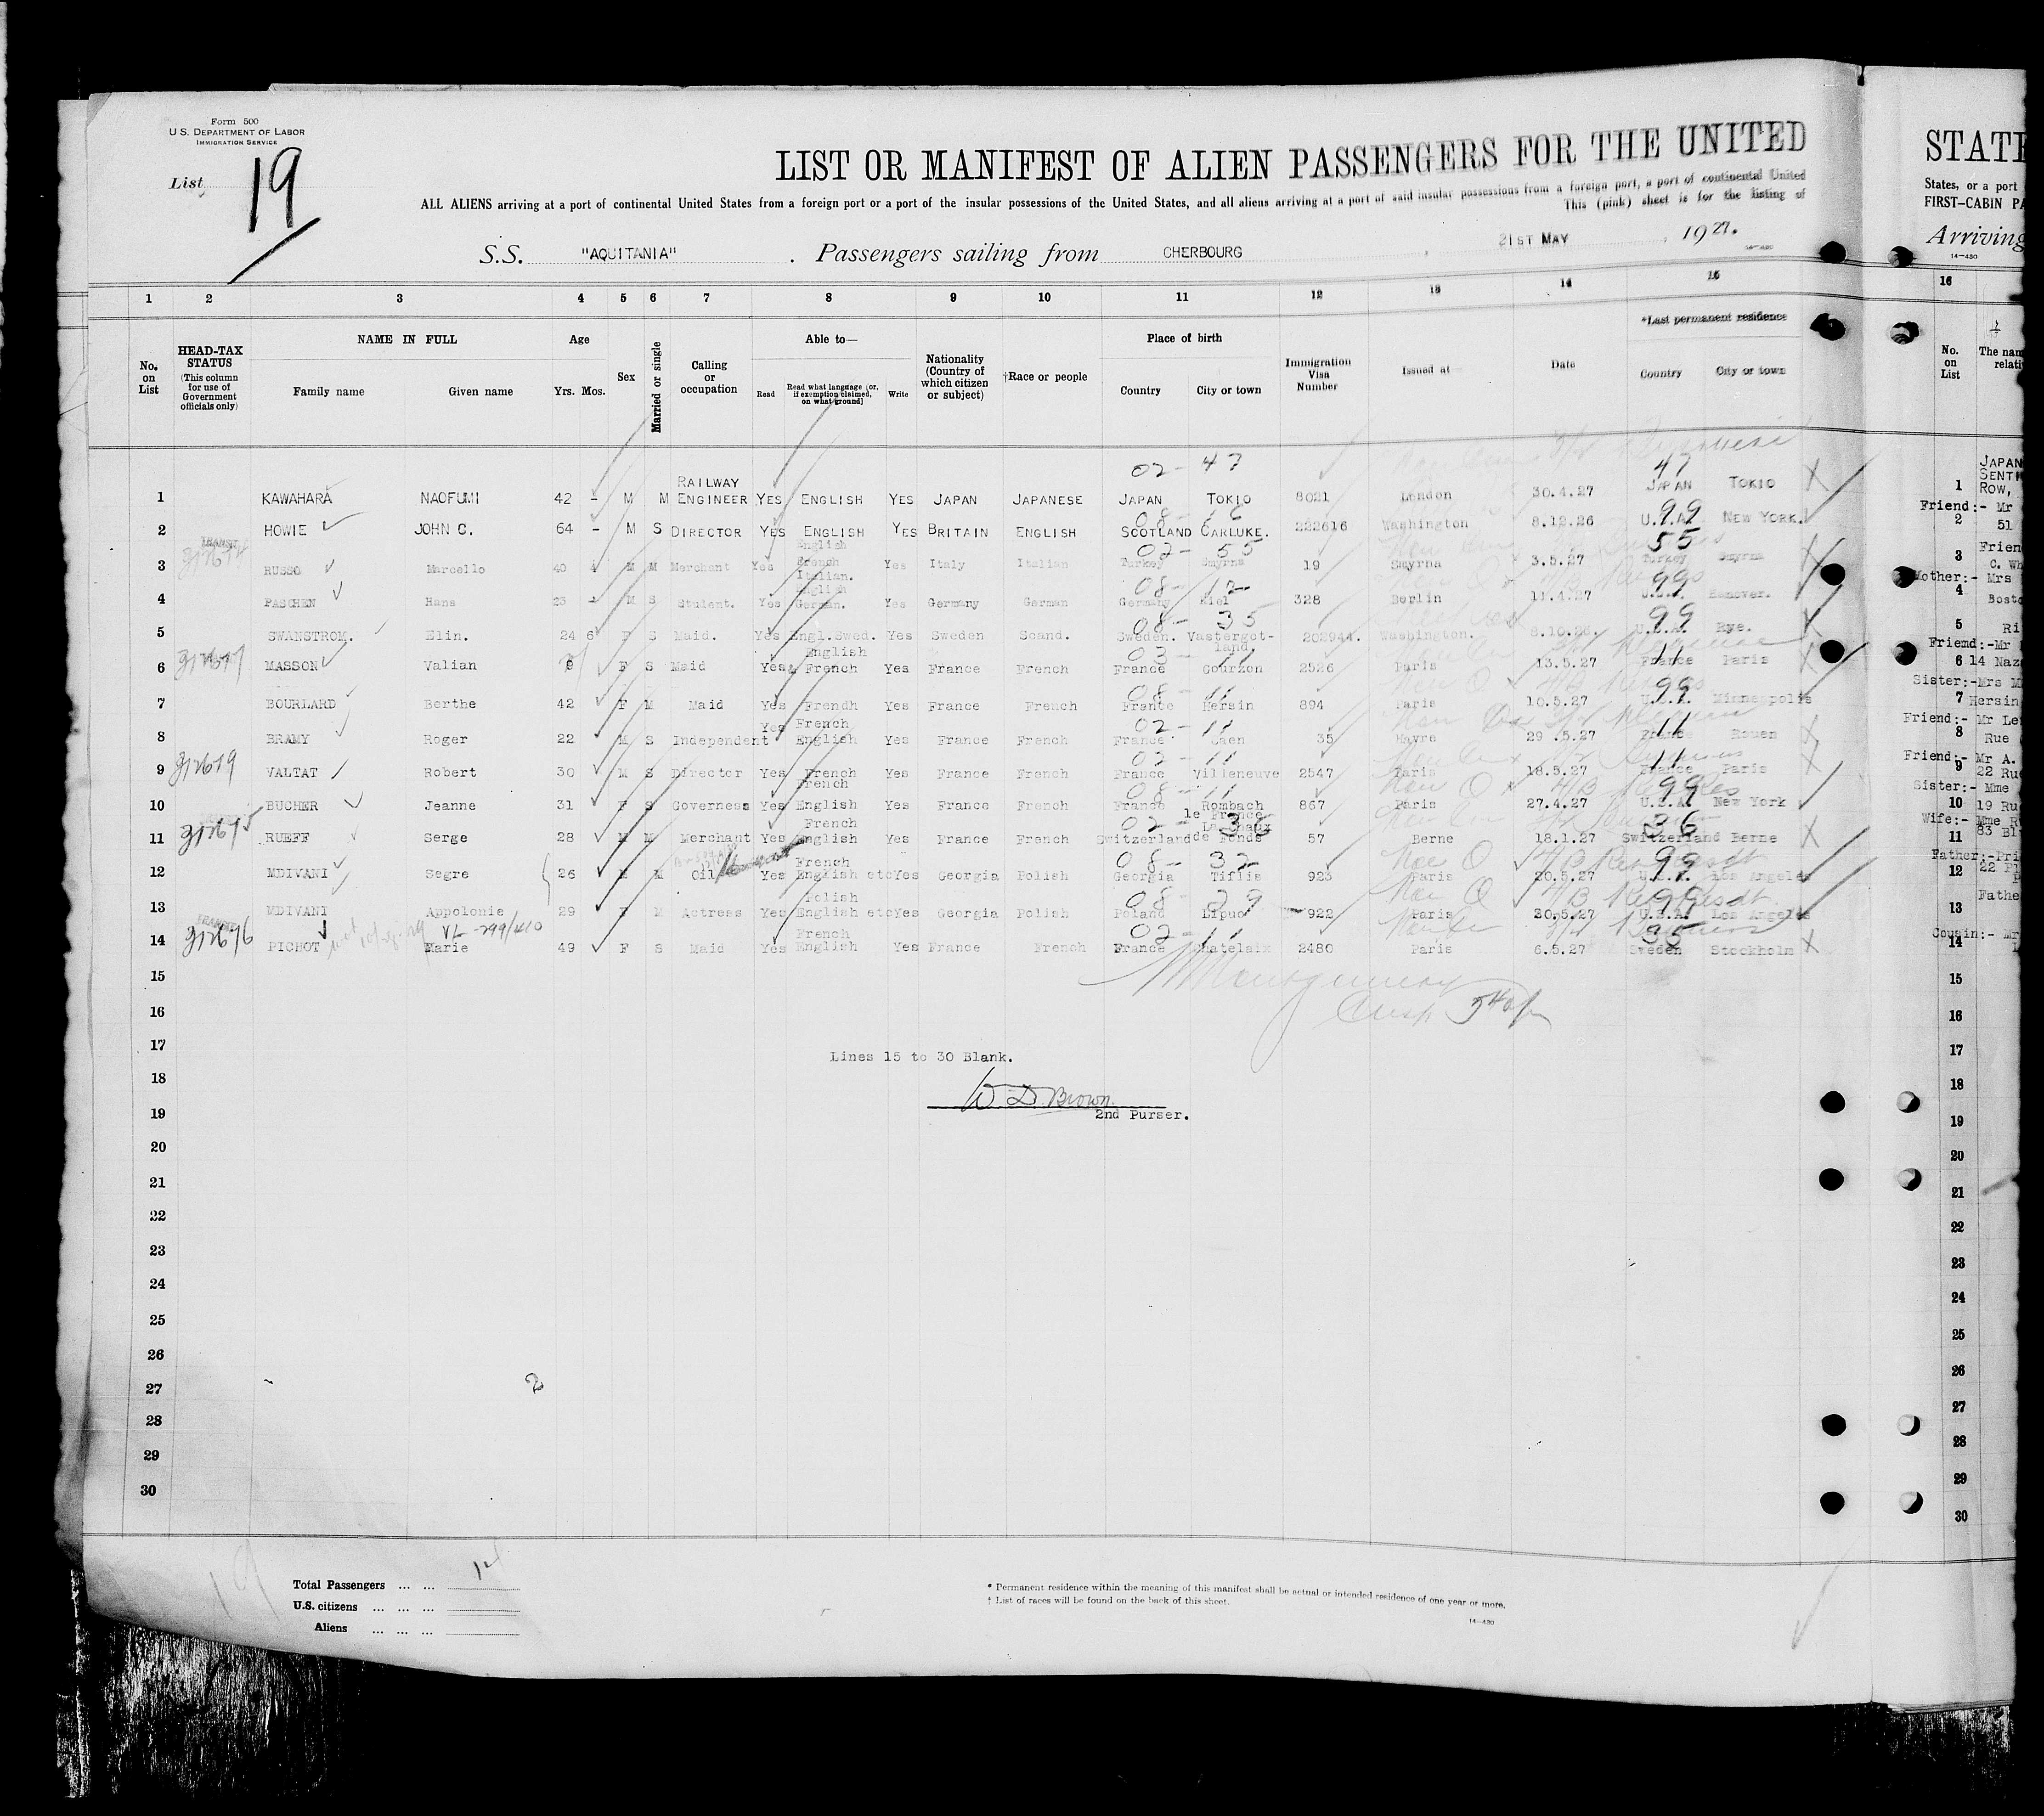 Form 500
U.S. DEPARTMENT OF LABOR
IMMIGRATION SERVICE
List 19
LIST OR MANIFEST OF ALIEN PASSENGERS FOR THE UNITED
ALL ALIENS arriving at a port of continental United States from a foreign port or a port of the insular possessions of the United States, and all aliens arriving at a port of said insular possessions from a foreign port, a port of continental United
This (pink) sheet is for the listing of
S.S. "AQUITANIA" . Passengers sailing from CHERBOURG , 21ST MAY , 1927.
1 2 3 4 5 6 7 8 9 10 11 12 13 14 15
No. on List
HEAD-TAX STATUS (This column for use of Government officials only)
NAME IN FULL Family name Given name
Age Yrs. Mos.
Sex
Married or single
Calling or occupation
Able to— Read Read what language (or, if exemption claimed, on what ground) Write
Nationality (Country of which citizen or subject)
†Race or people
Place of birth Country City or town
Immigration Visa Number
Issued at—
Date
*Last permanent residence Country City or town
02-47 47
1 KAWAHARA NAOFUMI 42 - M M RAILWAY ENGINEER YES ENGLISH YES JAPAN JAPANESE JAPAN TOKIO 8021 London 30.4.27 JAPAN TOKIO
08-16 99
2 HOWIE JOHN C. 64 - M S DIRECTOR YES ENGLISH YES BRITAIN ENGLISH SCOTLAND CARLUKE. 222616 Washington 8.12.26 U.S.A. NEW YORK.
02-55 55
3 RUSSO Marcello 40 M M Merchant Yes English French Italian. Yes Italy Italian Turkey Smyrna 19 Smyrna 3.5.27 Turkey Smyrna
08-12 99
4 PASCHEN Hans 23 - M S Student. Yes English German. Yes Germany German Germany Kiel 328 Berlin 11.4.27 U.S.A. Hanover.
08-35 99
5 SWANSTROM. Elin. 24 6 F S Maid. Yes Engl.Swed. Yes Sweden Scand. Sweden. Vastergot-land. 202944. Washington. 8.10.26. U.S.A. Rye.
11
6 MASSON Valian F S Maid Yes English & French Yes France French France Gourzon 2526 Paris 13.5.27 France Paris
08-11 99
7 BOURLARD Berthe 42 F M Maid Yes Frendh Yes France French France Hersin 894 Paris 10.5.27 U.S.A. Minneapolis
02-11 11
8 BRAMY Roger 22 M S Independent Yes French English Yes France French France Caen 35 Havre 29.5.27 France Rouen
02-11 11
9 VALTAT Robert 30 M S Director Yes French Yes France French France Villeneuve 2547 Paris 18.5.27 France Paris
08-11 99
10 BUCHER Jeanne 31 F S Governess Yes French English Yes France French France Rombach le Franc 867 Paris 27.4.27 U.S.A. New York
02-36 36
11 RUEFF Serge 28 M M Merchant Yes French English Yes France French Switzerland La Chaux de Fonds 57 Berne 18.1.27 Switzerland Berne
08-32 99
12 MDIVANI Segre 26 M M Oil Yes French English etc Yes Georgia Polish Georgia Tiflis 923 Paris 20.5.27 U.S.A. Los Angeles
08-29 99
13 MDIVANI Appolonie 29 F M Actress Yes Polish English etc Yes Georgia Polish Poland Lipno 922 Paris 20.5.27 U.S.A. Los Angeles
VL-299/410
02-11 35
14 PICHOT Marie 49 F S Maid Yes French English Yes France French France Chatelaix 2480 Paris 6.5.27 Sweden Stockholm
15
16
17
Lines 15 to 30 Blank.
18
W D Brown.
19
2nd Purser.
20
21
22
23
24
25
26
27
28
29
30
Total Passengers ... ... 14
U.S. citizens ... ... ...
Aliens ... ... ...
* Permanent residence within the meaning of this manifest shall be actual or intended residence of one year or more.
† List of races will be found on the back of this sheet.
14—430
STATE
States, or a port
FIRST-CABIN PA
Arriving
14—430
16
No. on List
The nam
relati
JAPAN
SENTI
1 ROW,
Friend:- Mr
2 51
Frien
3 C. Wh
Mother:- Mrs
4 Bosto
5 Ri
Friend:-Mr
6 14 Naz
Sister:-Mrs M
7 Hersin
Friend:- Mr Le
8 Rue
Friend:- Mr A.
9 22 Rue
Sister:- Mme
10 19 Ru
Wife:- Mme R
11 83 Bl
Father:-Pri
12 22 Pl
Fathe
13
Cousin:- Mr
14
15
16
17
18
19
20
21
22
23
24
25
26
27
28
29
30